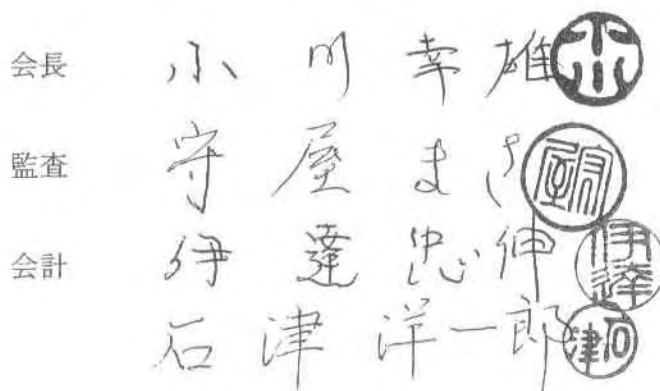 会長 小川幸雄 小川
監査 守屋まさ 守屋
会計 伊達忠伸 伊達
石津洋一郎 石津